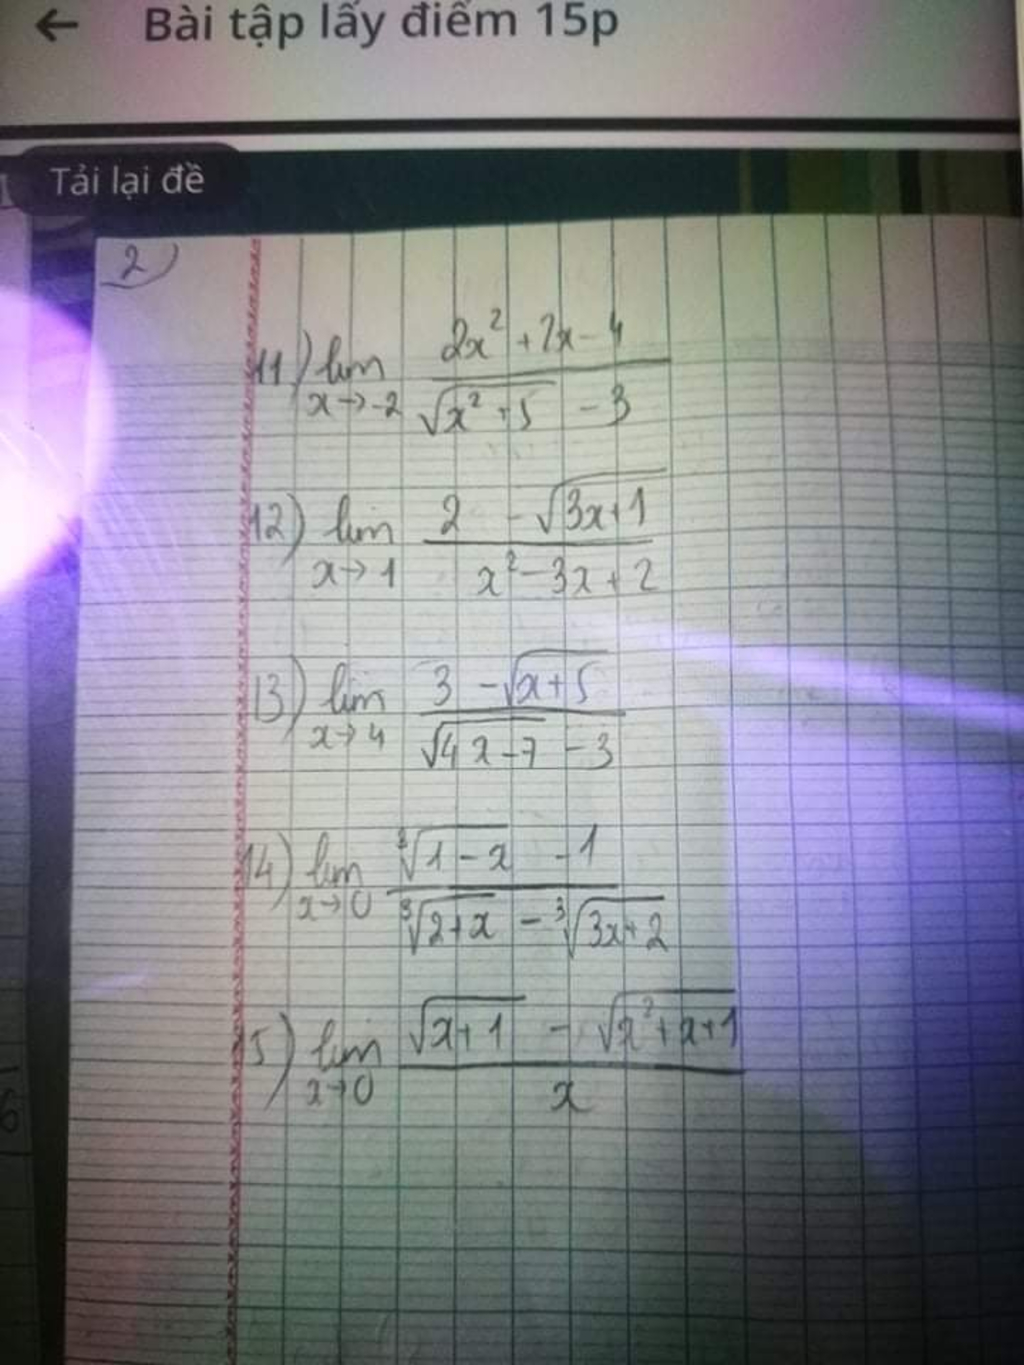 ← Bài tập lấy điểm 15p
Tải lại đề
2)
11) lim x→-2 (2x² + 2x - 4)/(√(x² + 5) - 3)
12) lim x→1 (2 - √(3x+1))/(x² - 3x + 2)
13) lim x→4 (3 - √(x+5))/(√(4x-7) - 3)
14) lim x→0 (³√(1-x) - 1)/(³√(2+x) - ³√(3x+2))
15) lim x→0 (√(x+1) - √(x²+x+1))/x
6